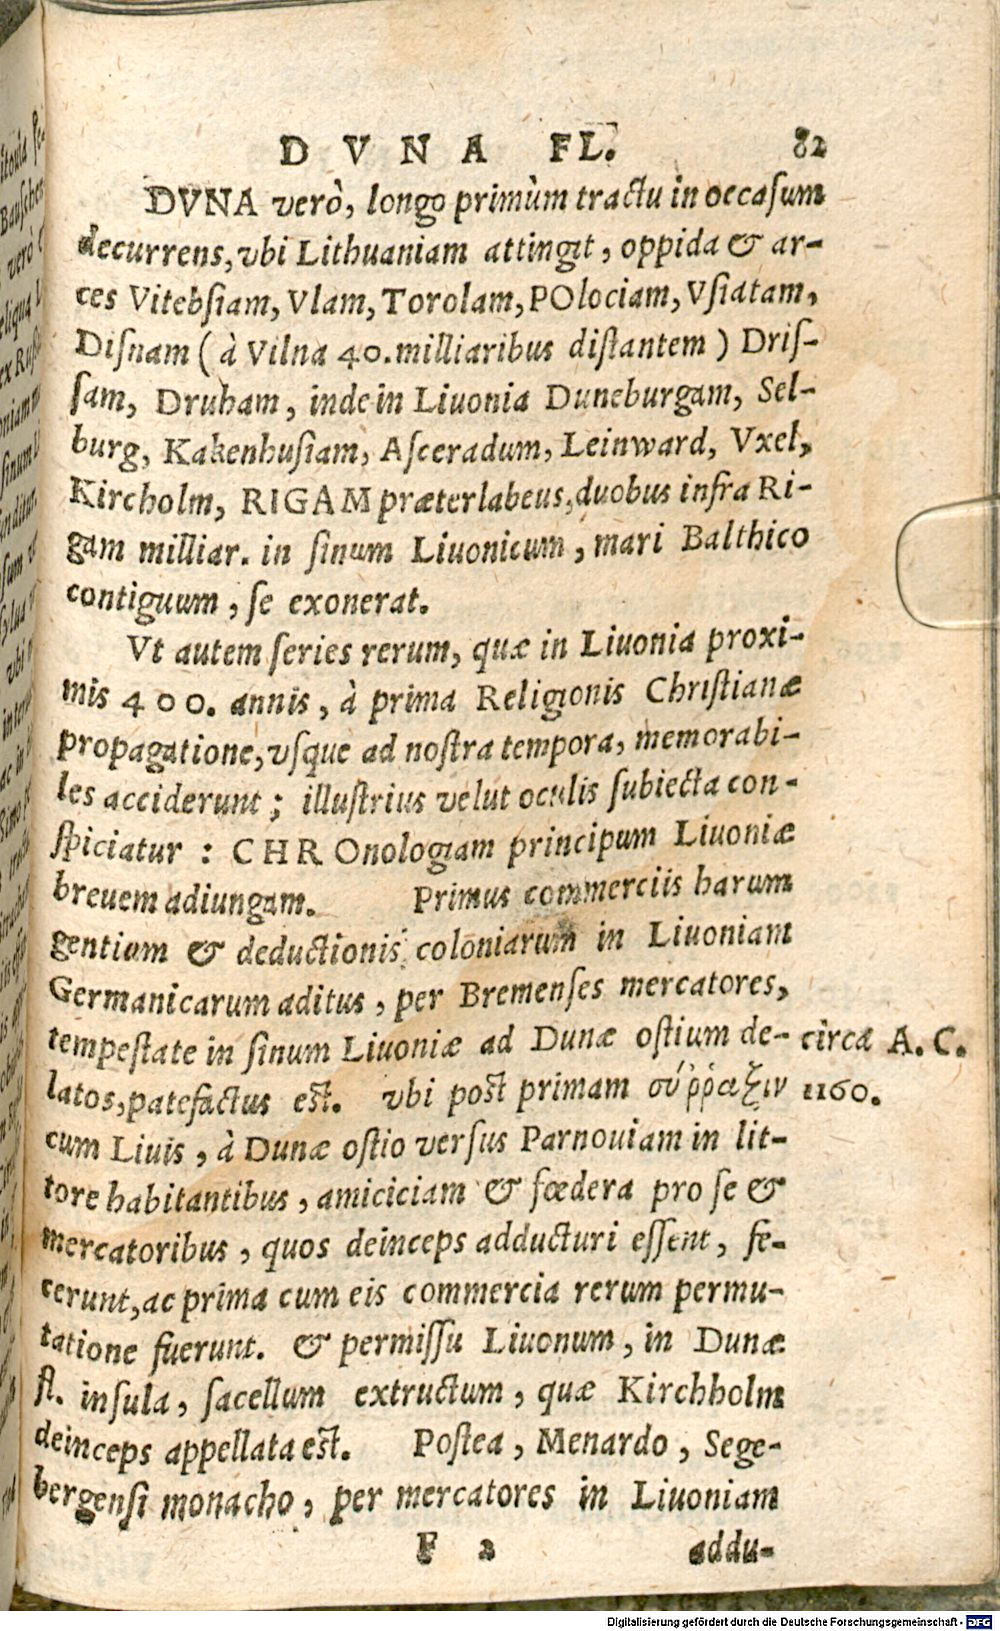 DVNA FL. 82
DVNA verò, longo primùm tractu in occasum
decurrens, vbi Lithuaniam attingit, oppida & ar-
ces Vitebsiam, Vlam, Torolam, POlociam, Vsiatam,
Disnam (à Vilna 40. milliaribus distantem) Dris-
sam, Druham, inde in Liuonia Duneburgam, Sel-
burg, Kakenhusiam, Asceradum, Leinward, Vxel,
Kircholm, RIGAM præterlabeus, duobus infra Ri-
gam milliar. in sinum Liuonicum, mari Balthico
contiguum, se exonerat.
Vt autem series rerum, quæ in Liuonia proxi-
mis 400. annis, à prima Religionis Christianæ
propagatione, vsque ad nostra tempora, memorabi-
les acciderunt; illustrius velut oculis subiecta con-
spiciatur: CHROnologiam principum Liuoniæ
breuem adiungam. Primus commerciis harum
gentium & deductionis coloniarum in Liuoniam
Germanicarum aditus, per Bremenses mercatores,
tempestate in sinum Liuoniæ ad Dunæ ostium de- circa A. C.
latos, patefactus est. vbi post primam σύῤῥαξιν 1160.
cum Liuis, à Dunæ ostio versus Parnouiam in lit-
tore habitantibus, amiciciam & fœdera pro se &
mercatoribus, quos deinceps adducturi essent, fe-
cerunt, ac prima cum eis commercia rerum permu-
tatione fuerunt. & permissu Liuonum, in Dunæ
fl. insula, sacellum extructum, quæ Kirchholm
deinceps appellata est. Postea, Menardo, Sege-
bergensi monacho, per mercatores in Liuoniam
F 2 addu-
Digitalisierung gefördert durch die Deutsche Forschungsgemeinschaft - DFG